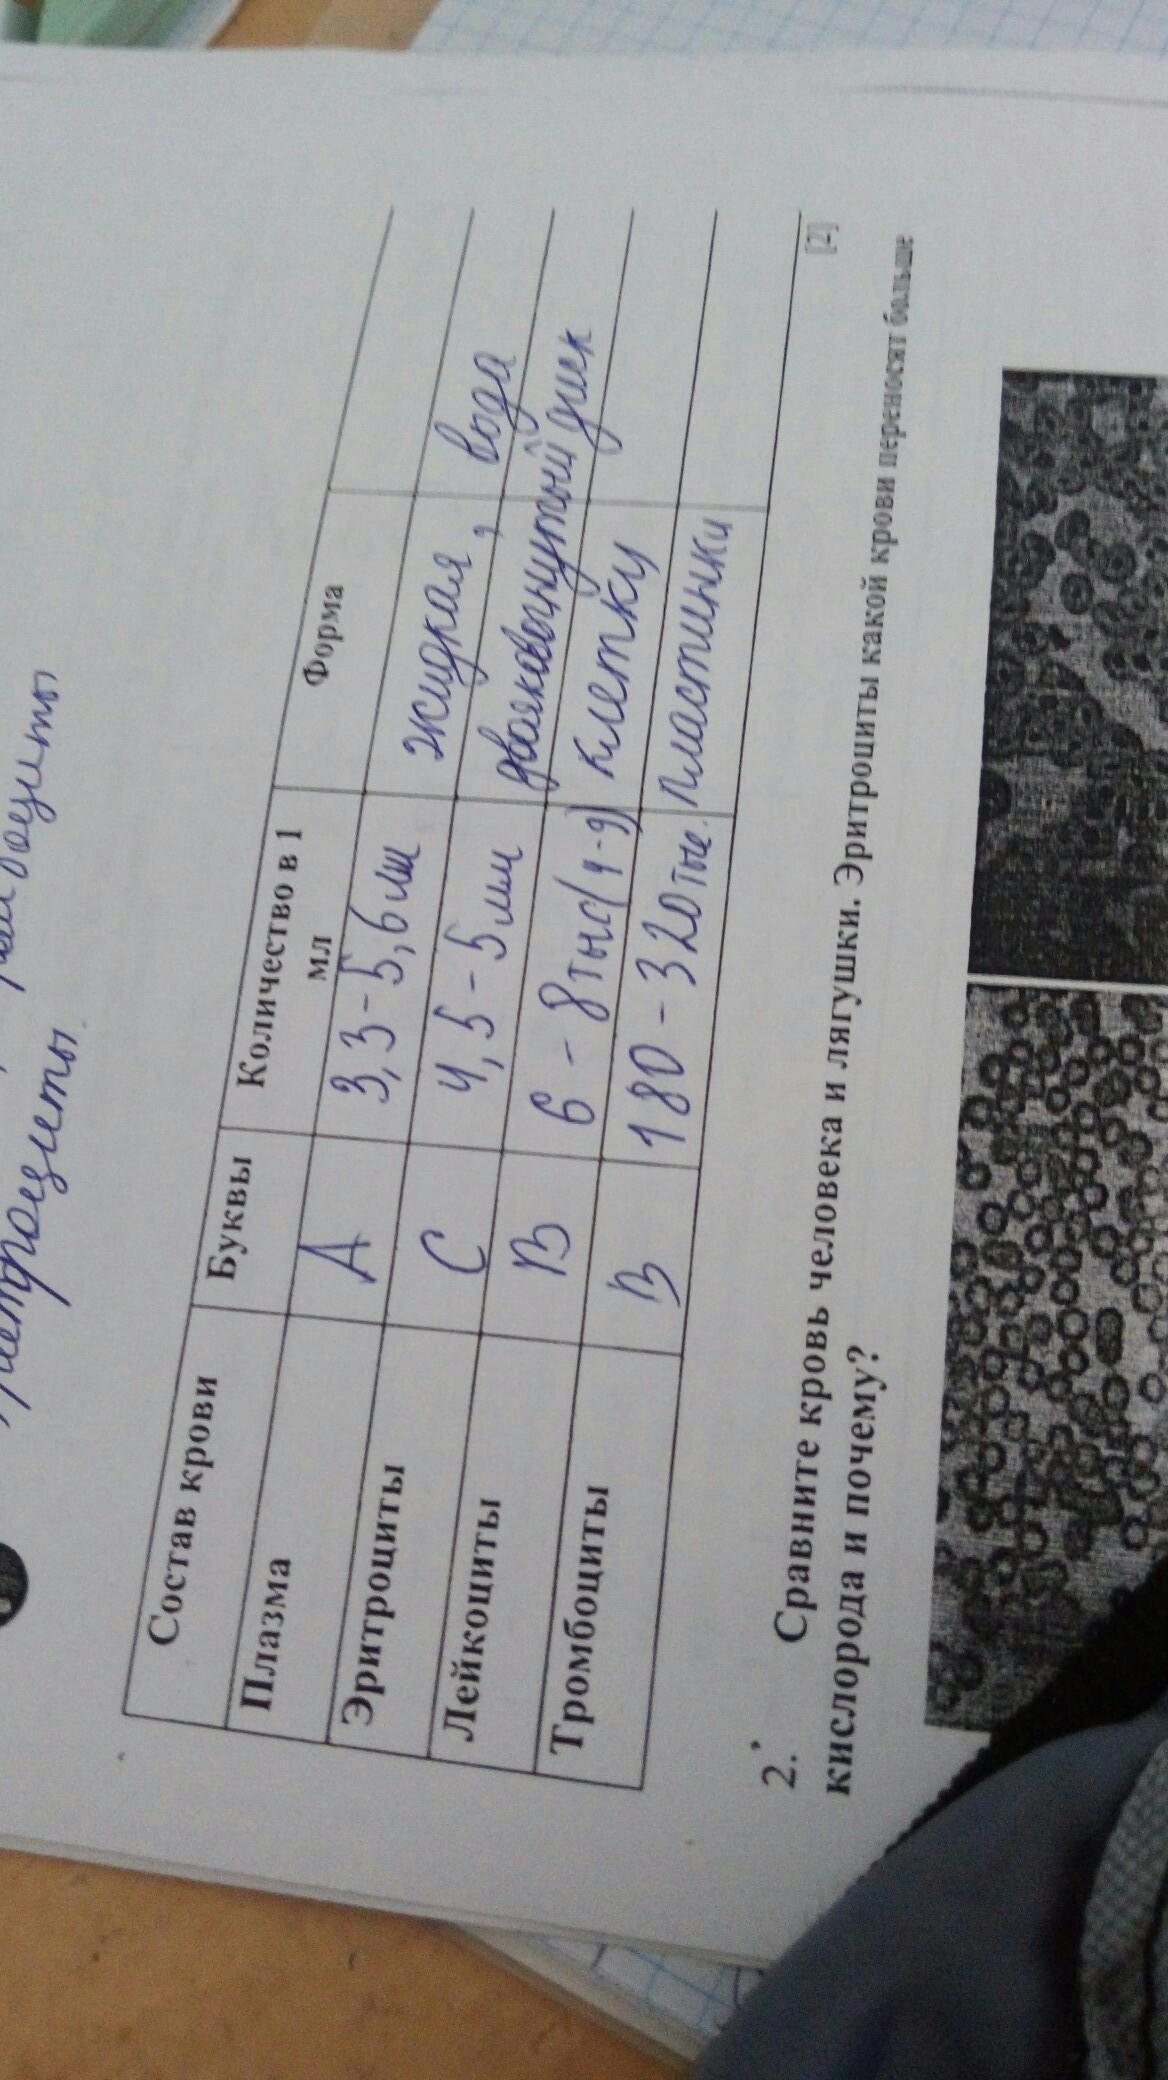 тромбоциты.
Состав крови Буквы Количество в 1 мл Форма
Плазма А 3,3-5,6 мл жидкая, вода
Эритроциты С 4,5-5 мл двояковогнутый диск
Лейкоциты В 6-8 тыс (4-9) клетки
Тромбоциты В 180-320 тыс. пластинки
[2]
2. Сравните кровь человека и лягушки. Эритроциты какой крови переносят больше
кислорода и почему?